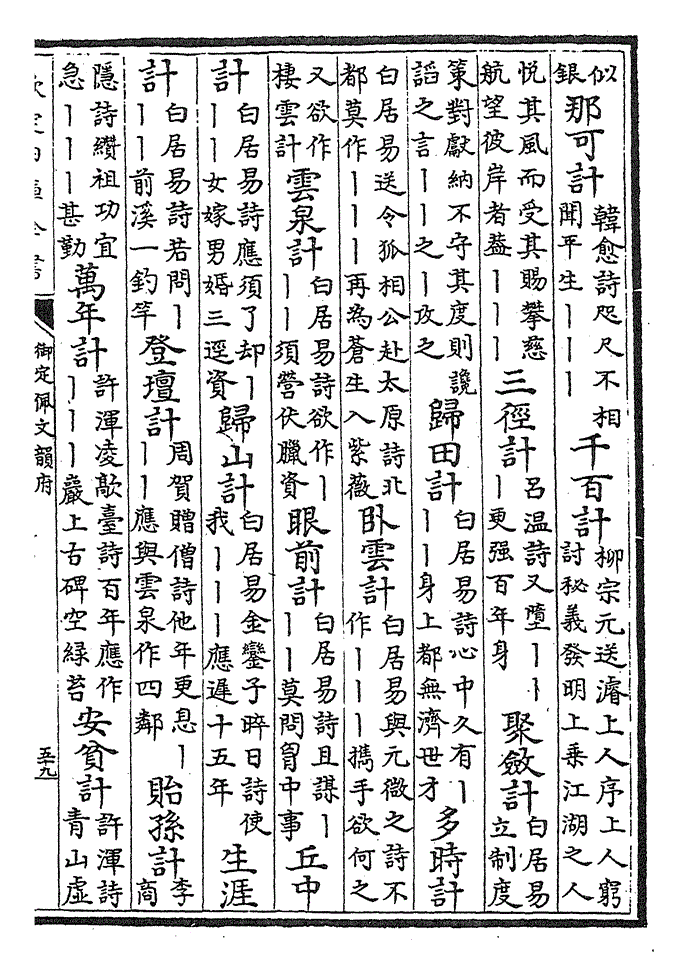 似銀那可計韓愈詩咫尺不相聞平生丨丨丨千百計柳宗元送濬上人序上人窮討秘義發明上乘江湖之人
悦其風而受其賜攀慈航望彼岸者葢丨丨丨三徑計呂溫詩又墮丨丨丨更强百年身聚斂計白居易立制度
策對獻納不守其度則讒謟之言丨丨之丨攻之歸田計白居易詩心中久有丨丨丨身上都無濟世才多時計
白居易送令狐相公赴太原詩北都莫作丨丨丨再為蒼生入紫薇卧雲計白居易與元微之詩不作丨丨丨攜手欲何之
又欲作棲雲計雲泉計白居易詩欲作丨丨丨須營伏臘資眼前計白居易詩且謀丨丨丨莫問胷中事丘中
計白居易詩應須了却丨丨丨女嫁男婚三逕資歸山計白居易金鑾子晬日詩使我丨丨丨應遲十五年生涯
計白居易詩若問丨丨丨前溪一釣竿登壇計周賀贈僧詩他年更息丨丨丨應與雲泉作四鄰貽孫計李商
隱詩纘祖功宜急丨丨丨甚勤萬年計許渾凌歊臺詩百年應作丨丨丨巖上古碑空緑苔安貧計許渾詩青山虚
欽定四庫全書
御定佩文韻府
五十九